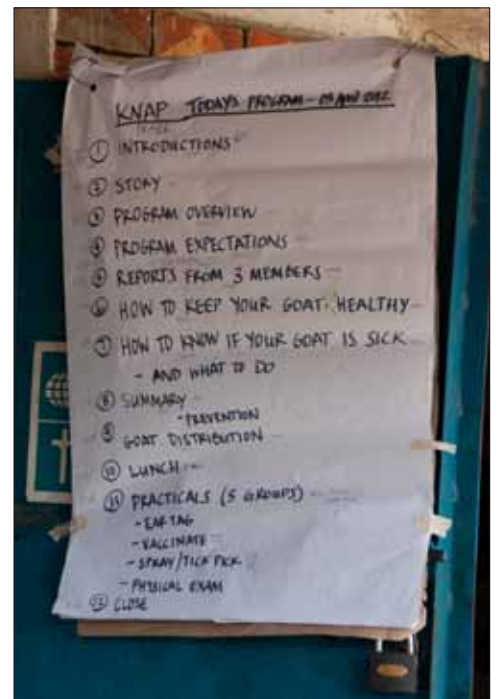 KNAP TODAY'S PROGRAM -
① INTRODUCTIONS
② STORY
③ PROGRAM OVERVIEW
④ PROGRAM EXPECTATIONS
⑤ REPORTS FROM 3 MEMBERS
⑥ HOW TO KEEP YOUR GOAT HEALTHY
⑦ HOW TO KNOW IF YOUR GOAT IS SICK
- AND WHAT TO DO
⑧ SUMMARY
- PREVENTION
⑨ GOAT DISTRIBUTION
⑩ LUNCH
⑪ PRACTICALS (5 GROUPS)
- EAR TAG
- VACCINATE
- SPRAY/TICK PICK
- PHYSICAL EXAM
⑫ CLOSE